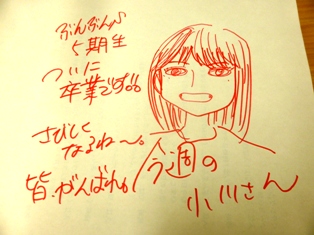 ぶんぶん♪
5期生
ついに
卒業です。
さびしく
なるね〜。
皆、がんばれ。
今週の
小川さん